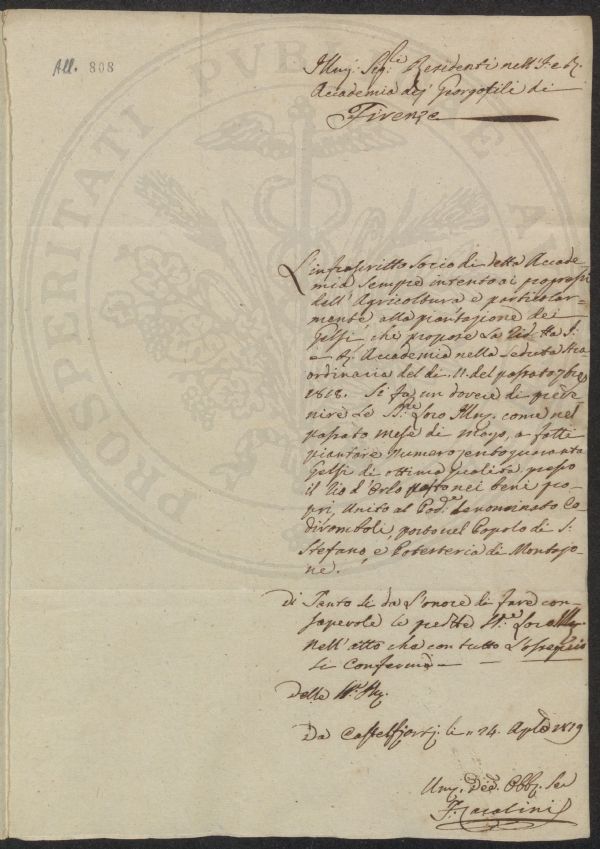 All. 808
Illmi. Sigri. Residenti nell' I. e R.
Accademia dei Georgofili di
Firenze
L'infrascritto Socio di detta Accade=
mia sempre intento ai progressi
dell' Agricoltura e particolar=
mente alla piantazione dei
Gelsi, che propose la I.
e R. Accademia nella Seduta
ordinaria del dì. 11. del passato 7bre
1818. Si fa un dovere di preve=
nire le Loro Illme. come nel
passato mese di a fatti
piantare Numero
Gelsi di ottima qualità presso
il Rio d'Orlo nei beni pro=
pri, unito al Pode. denominato Ca
di posto nel Popolo di S.
Stefano, e Potesteria di Montajo=
ne.
Di Tanto si da l'onore di fare con=
sapevole le predtte Loro Illme.
nell' atto che con tutto l'ossequio
si conferma
Delle
Da Castelfiorj. li 24. Aple 1819
Umj. Dev. Obb. Ser